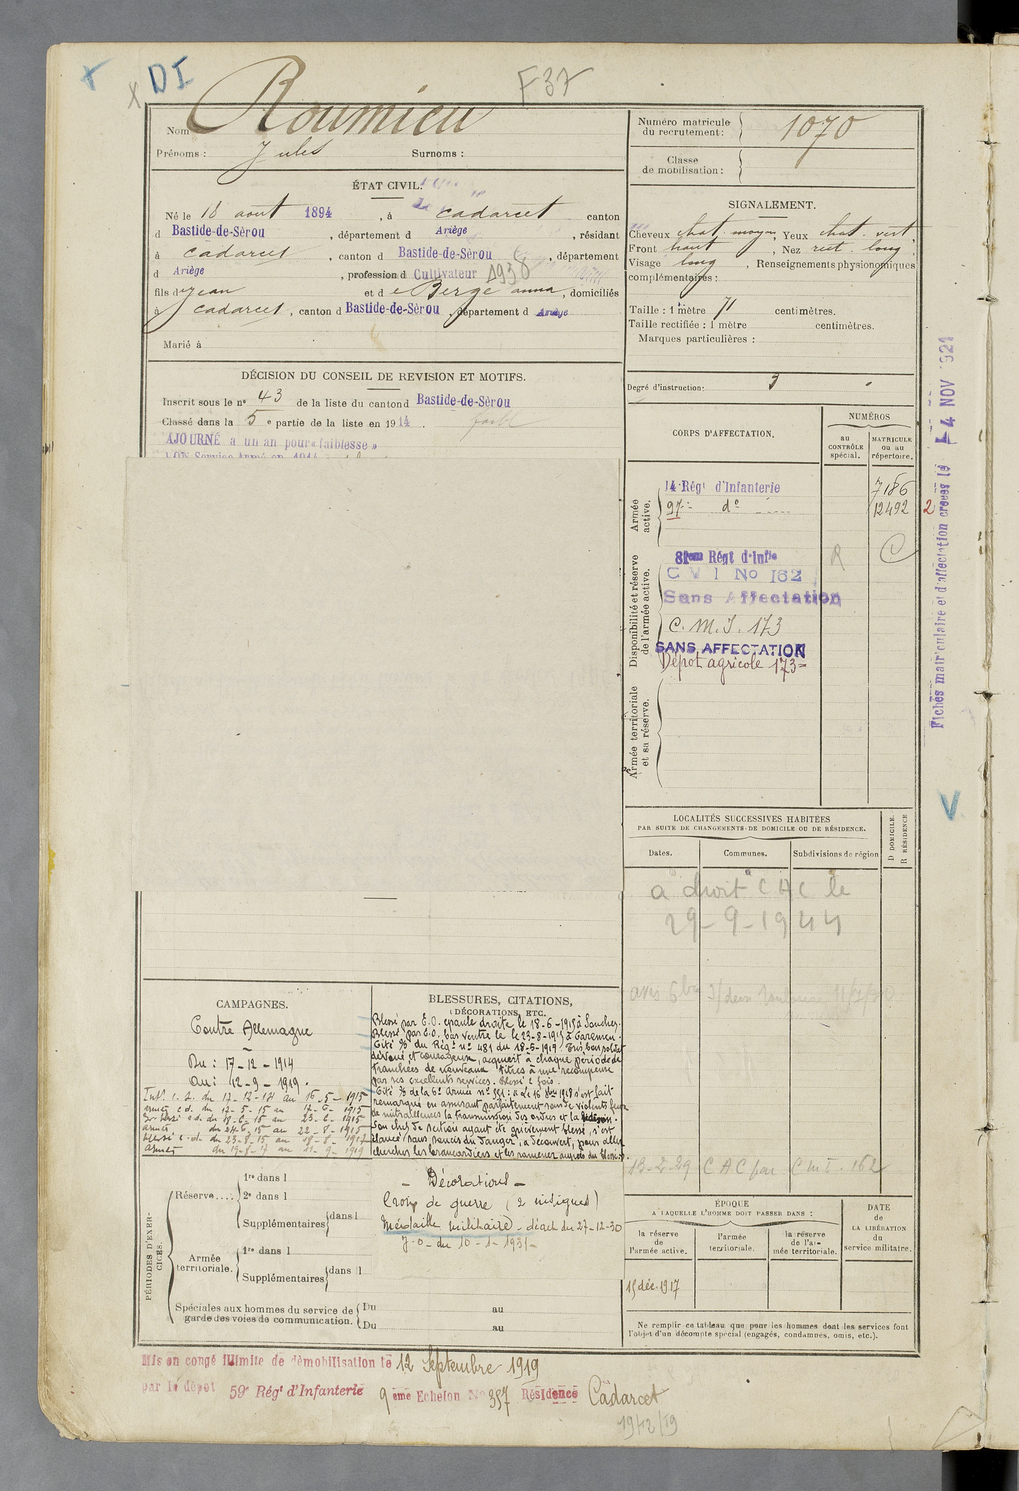 X DI
X
F 37
Nom Roumieu
Prénoms : Jules Surnoms :
Numéro matricule du recrutement : 1070
Classe de mobilisation :
ÉTAT CIVIL.
Né le 18 août 1894, à Cadarcet canton
d Bastide-de-Sérou, département d Ariège, résidant
à Cadarcet, canton d Bastide-de-Sérou, département
d Ariège, profession d Cultivateur 1930
fils d Jean et d e Berge anna, domiciliés
à Cadarcet, canton d Bastide-de-Sérou, département d Ariège
Marié à
SIGNALEMENT.
Cheveux chat. moyen, Yeux chat. vert
Front haut, Nez rect. long
Visage long, Renseignements physionomiques
complémentaires :
Taille : 1 mètre 71 centimètres.
Taille rectifiée : 1 mètre centimètres.
Marques particulières :
Degré d'instruction : 3
DÉCISION DU CONSEIL DE REVISION ET MOTIFS.
Inscrit sous le n° 43 de la liste du canton d Bastide-de-Sérou
Classé dans la 5e partie de la liste en 1914.
AJOURNÉ a un an pour « faiblesse »
BON Service Armé en 1914
CORPS D'AFFECTATION.
NUMÉROS
au CONTRÔLE spécial.
MATRICULE ou au répertoire.
Armée active.
14 Régt d'Infanterie 7186
97e do 12492
2
Disponibilité et réserve de l'armée active.
81eme Régt d'Infie R C
C V I No 162
Sans Affectation
C. M. I. 173
SANS AFFECTATION
Dépôt agricole 173
Armée territoriale et sa réserve.
Fiches matriculaire et d'affectation créées le 4 NOV 1921
V
LOCALITÉS SUCCESSIVES HABITÉES
PAR SUITE DE CHANGEMENTS DE DOMICILE OU DE RÉSIDENCE.
Dates. Communes. Subdivisions de région
D DOMICILE.
R RÉSIDENCE
a droit C A C le
29-9-1944
13-2-29 C A C par C m I. 162
CAMPAGNES.
Contre Allemagne
Du : 17-12-1914
Au : 12-9-1919.
Int. c. d. du 17-12-14 au 16-5-1915
BLESSURES, CITATIONS,
DÉCORATIONS, ETC.
Blessé par E.O. épaule droite le 18-6-1915 à Souchez.
Blessé par E.O. bas ventre le 23-8-1917 à
Cité % du Régt n° 481 du 18-5-1919. Très bon soldat
dévoué et courageux, acquiert à chaque période de
tranchées de nouveaux titres à une récompense
par ses excellents services. Blessé 2 fois.
Cité % de la 6e Armée n° 551 : Le 16 8bre 1918 s'est fait
remarquer en assurant parfaitement sous de violents feux
de mitrailleuses la transmission des ordres et la liaison.
Son chef de section ayant été grièvement blessé, s'est
élancé sans soucis du danger, à découvert, pour aller
chercher les brancardiers et les ramener auprès du blessé.
- Décorations -
Croix de guerre (2 citations)
Médaille militaire - décret du 27-12-30
J.O. du 10-1-1931-
PÉRIODES D'EXERCICES.
Réserve....
1re dans l
2e dans l
Supplémentaires dans l
Armée territoriale.
1re dans l
Supplémentaires dans l
Spéciales aux hommes du service de garde des voies de communication.
Du au
Du au
ÉPOQUE
A LAQUELLE L'HOMME DOIT PASSER DANS :
la réserve de l'armée active.
l'armée territoriale.
la réserve de l'armée territoriale.
DATE de LA LIBÉRATION du service militaire.
15 déc. 1917
Ne remplir ce tableau que pour les hommes dont les services font
l'objet d'un décompte spécial (engagés, condamnés, omis, etc.).
Mis en congé illimité de démobilisation le 12 Septembre 1919
par le dépôt 59e Régt d'Infanterie 9eme Echelon No 357 Résidence Cadarcet
19/12/19